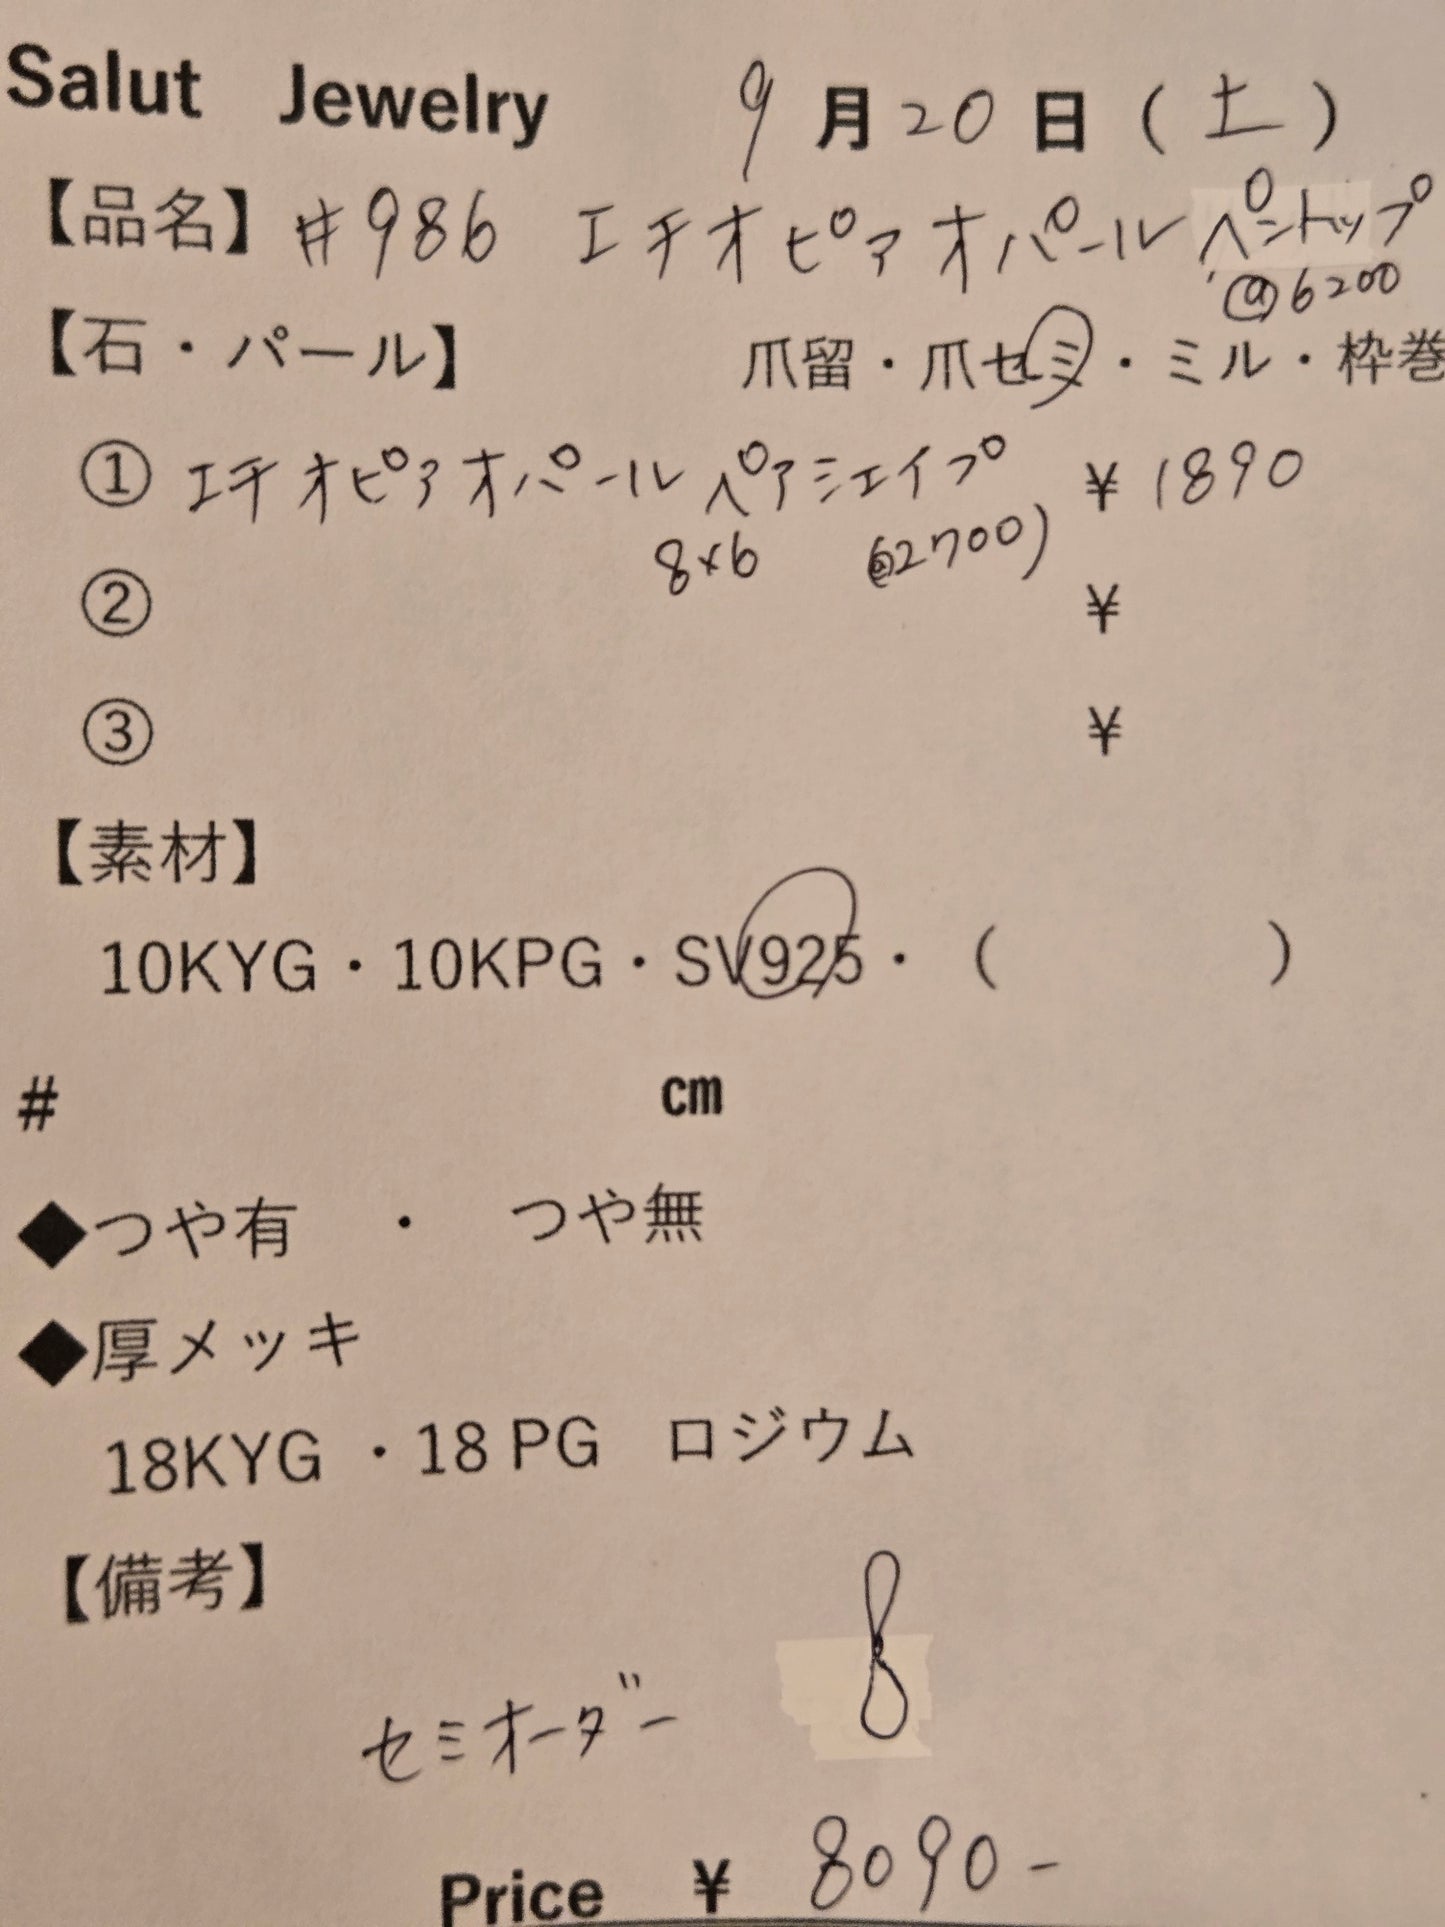 Salut Jewelry 9月20日(土)
【品名】#986 エチオピアオパールペントップ
@6200
【石・パール】 爪留・爪セミ・ミル・枠巻
① エチオピアオパール ペアシェイプ ¥1890
8×6 @2700)
② ¥
③ ¥
【素材】
10KYG・10KPG・SV925・( )
# cm
◆つや有 ・ つや無
◆厚メッキ
18KYG ・18 PG ロジウム
【備考】
セミオーダー
Price ¥ 8090-